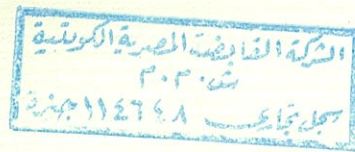 الشركة القابضة المصرية الكويتية
ش.م.م
سجل تجارى ١١٤٦٤٨ جيزة